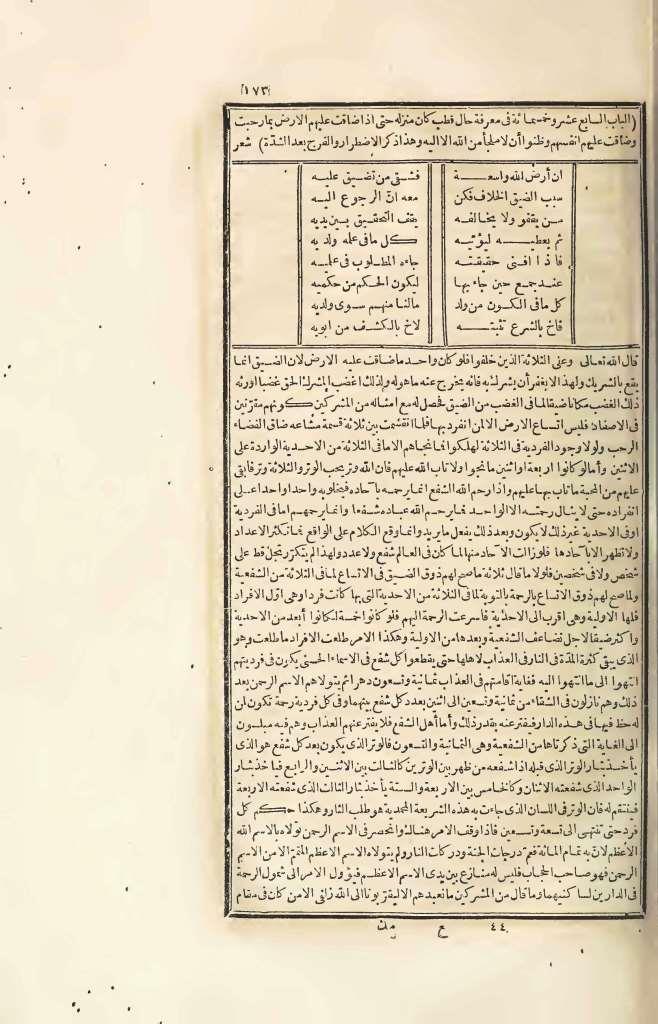 (١٧٣)
(الباب السابع عشر وخمسمائة فى معرفة حال قطب كان منزله حتى اذا ضاقت عليهم الارض بما رحبت
وضاقت عليهم أنفسهم وظنوا أن لا ملجأ من الله الا اليه وهذا ذكر الاضطرار والفرج بعد الشدّة) شعر
ان أرض الله واسعة فشتى من تضيق عليه
سبب الضيق الخلاف فكن معه انّ الرجوع اليه
من يقفو ولا يخالفه يقف التحقيق بين يديه
ثم يعطيه ليؤتيه كل ما فى علمه ولديه
فاذا افنى حقيقته جاءه المطلوب فى عليه
عند جمع حين جاء بها ليكون الحكم من حكميه
كل ما فى الكون من ولد مالنا منهم سوى ولديه
فاخ بالشرع تثبته لاخ بالكشف من ابويه
قال الله تعالى وعلى الثلاثة الذين خلفوا فلو كان واحد ما ضاقت عليه الارض لان الضيق انما
يقع بالشريك ولهذا لا يغفر أن يشرك به فانه يخرج عنه ما هو له ولذلك اغضب المشرك الحق غضبا اورثه
ذلك الغضب مكانا ضيقا لما فى الغضب من الضيق فحصل له مع امثاله من المشركين كونهم مقرّنين
فى الاصفاد فليس اتساع الارض الا لمن انفرد بها فلما انقسمت بين ثلاثة قسمة مشاعه ضاق الفضاء
الرحب ولولا وجود الفردية فى الثلاثة لهلكوا فما نجاهم الا ما فى الثلاثة من الاحدية الواردة على
الاثنين وأما لو كانوا اربعة او اثنين ما نجوا ولا تاب الله عليهم فان الله وتر يحب الوتر والثلاثة وتر فابقى
عليهم من المحبة ما تاب بها عليهم واذا رحم الله الشفع انما يرحمه بآحاده فيخلو به واحدا واحدا على
انفراده حتى لا ينال رحمته الا الواحد فما يرحم الله عباده شفعا وانما يرحمهم اما فى الفردية
او فى الاحدية غير ذلك لا يكون وبعد ذلك يفعل ما يريد وانما وقع الكلام على الواقع فما تكثر الاعداد
ولا تظهر الا بآحادها فلو زالت الآحاد منها لما كان فى العالم شفع ولا عدد ولهذا لم يتكرّر تجل قط على
شخص ولا فى شخصين فلولا ما قال ثلاثة ما صح لهم ذوق الضيق فى الاتساع لما فى الثلاثة من الشفعية
ولما صح لهم ذوق الاتساع بالرحمة بالتوبة لما فى الثلاثة من الاحدية التى بها كانت فردا وهى اوّل الافراد
فلها الاولية وهى اقرب الى الاحدية فاسرعت الرحمة اليهم فلو كانوا خمسة لكانوا أبعد من الاحدية
واكثر ضيقا لاجل تضاعف الشفعية وبعدها من الاولية وهكذا الامر طلعت الافراد ما طلعت وهو
الذى يبقى كثرة المدّة فى النار فى العذاب لاهلها حتى يقطعوا كل شفع فى الاسماء الحسنى يكون فى فرديتهم
انتهوا الى ما انتهوا اليه فغاية اقامتهم فى العذاب ثمانية وتسعون دهرا ثم يتولاهم الاسم الرحمن بعد
ذلك وهم نازلون فى الشقاء من ثمانية وتسعين الى اثنين بعدد كل شفع بينهما وفى كل فردية رحمة تكون لن
له حظ فيها فى هذه الدار فيفتر عنه بقدر ذلك وأما أهل الشفع فلا يفتر عنهم العذاب وهم فيه مبلسون
الى الغاية التى ذكرناها من الشفعية وهى الثمانية والتسعون فالوتر الذى يكون بعد كل شفع هو الذى
يأخذ بثار الوتر الذى قبله اذا شفعه من ظهر بين الوترين كالثالث بين الاثنين والرابع فيأخذ بثار
الواحد الذى شفعته الاثنان وكالخامس بين الاربعة والستة يأخذ بثار الثالث الذى شفعته الاربعة
فينتقم له فان الوتر فى اللسان الذى جاءت به هذه الشريعة المحمدية هو طلب الثار وهكذا حكم كل
فرد حتى تنتهى الى تسعة وتسعين فاذا وقف الامر هنالك وانحصر فى الاسم الرحمن تولاه بالاسم الله
الاعظم لانّ به تمام المائة فيتم درجات الجنة ودركات النار ولم يتولاه الاسم الاعظم المتمم الا من الاسم
الرحمن فهو صاحب الحجاب فليس له منازع بين يدى الاسم الاعظم فيؤول الامر الى شمول الرحمة
فى الدارين لساكنيهما وما قال من المشركين ما نعبدهم الا ليقرّبونا الى الله زلفى الا من كان فى مقام
٤٤ ع مك